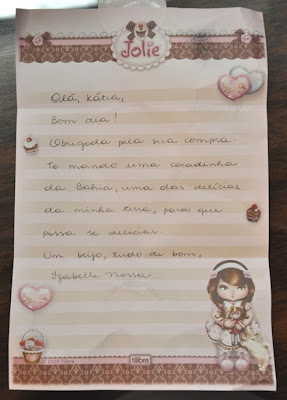 Jolie
Olá, Kátia,
Bom dia!
Obrigada pela sua compra.
Te mando uma cocadinha
da Bahia, uma das delícias
da minha terra, para que
possa se deliciar.
Um beijo, tudo de bom,
Izabelle Nossa.
tilibra